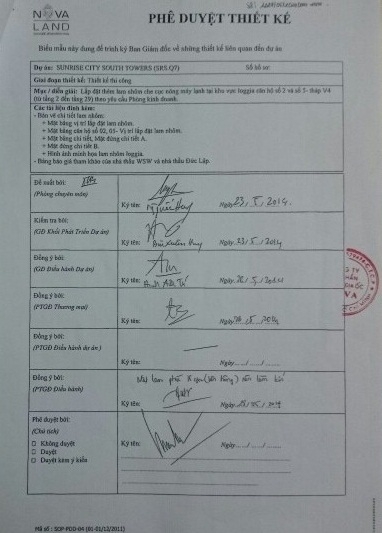 NOVA LAND
PHÊ DUYỆT THIẾT KẾ
Biểu mẫu này dùng để trình ký Ban Giám đốc về những thiết kế liên quan đến dự án
Dự án: SUNRISE CITY SOUTH TOWERS (SRS.Q7) Số hồ sơ:
Giai đoạn thiết kế: Thiết kế thi công
Mục / diễn giải: Lắp đặt thêm lam nhôm che cục nóng máy lạnh tại khu vực loggia căn hộ số 2 và số 5- tháp V4
(từ tầng 2 đến tầng 29) theo yêu cầu Phòng kinh doanh.
Các tài liệu đính kèm:
- Bản vẽ chi tiết lam nhôm:
+ Mặt bằng vị trí lắp đặt lam nhôm.
+ Mặt bằng căn hộ số 02, 05- Vị trí lắp đặt lam nhôm.
+ Mặt bằng chi tiết, Mặt đứng chi tiết A.
+ Mặt đứng chi tiết B.
+ Hình ảnh minh họa lam nhôm loggia.
- Bảng báo giá tham khảo của nhà thầu WSW và nhà thầu Đức Lập.
Đề xuất bởi:
(Phòng chuyên môn)
Ký tên: Ngày 23/5/2014.
Kiểm tra bởi:
(GĐ Khối Phát Triển Dự án)
Ký tên: Ngày 23/5/2014
Đồng ý bởi:
(GĐ Điều hành Dự án)
Ký tên: Ngày
Đồng ý bởi:
(PTGĐ Thương mại)
Ký tên: Ngày
Đồng ý bởi:
(PTGĐ Điều hành dự án)
Ký tên: Ngày...../...../.....
Đồng ý bởi:
(PTGĐ Điều hành)
Ký tên: Ngày
Phê duyệt bởi:
(Chủ tịch)
Không duyệt
Duyệt
Duyệt kèm ý kiến
Ký tên: Ngày...../...../.....
Mã số : SOP-PDD-04 (01-01/12/2011)